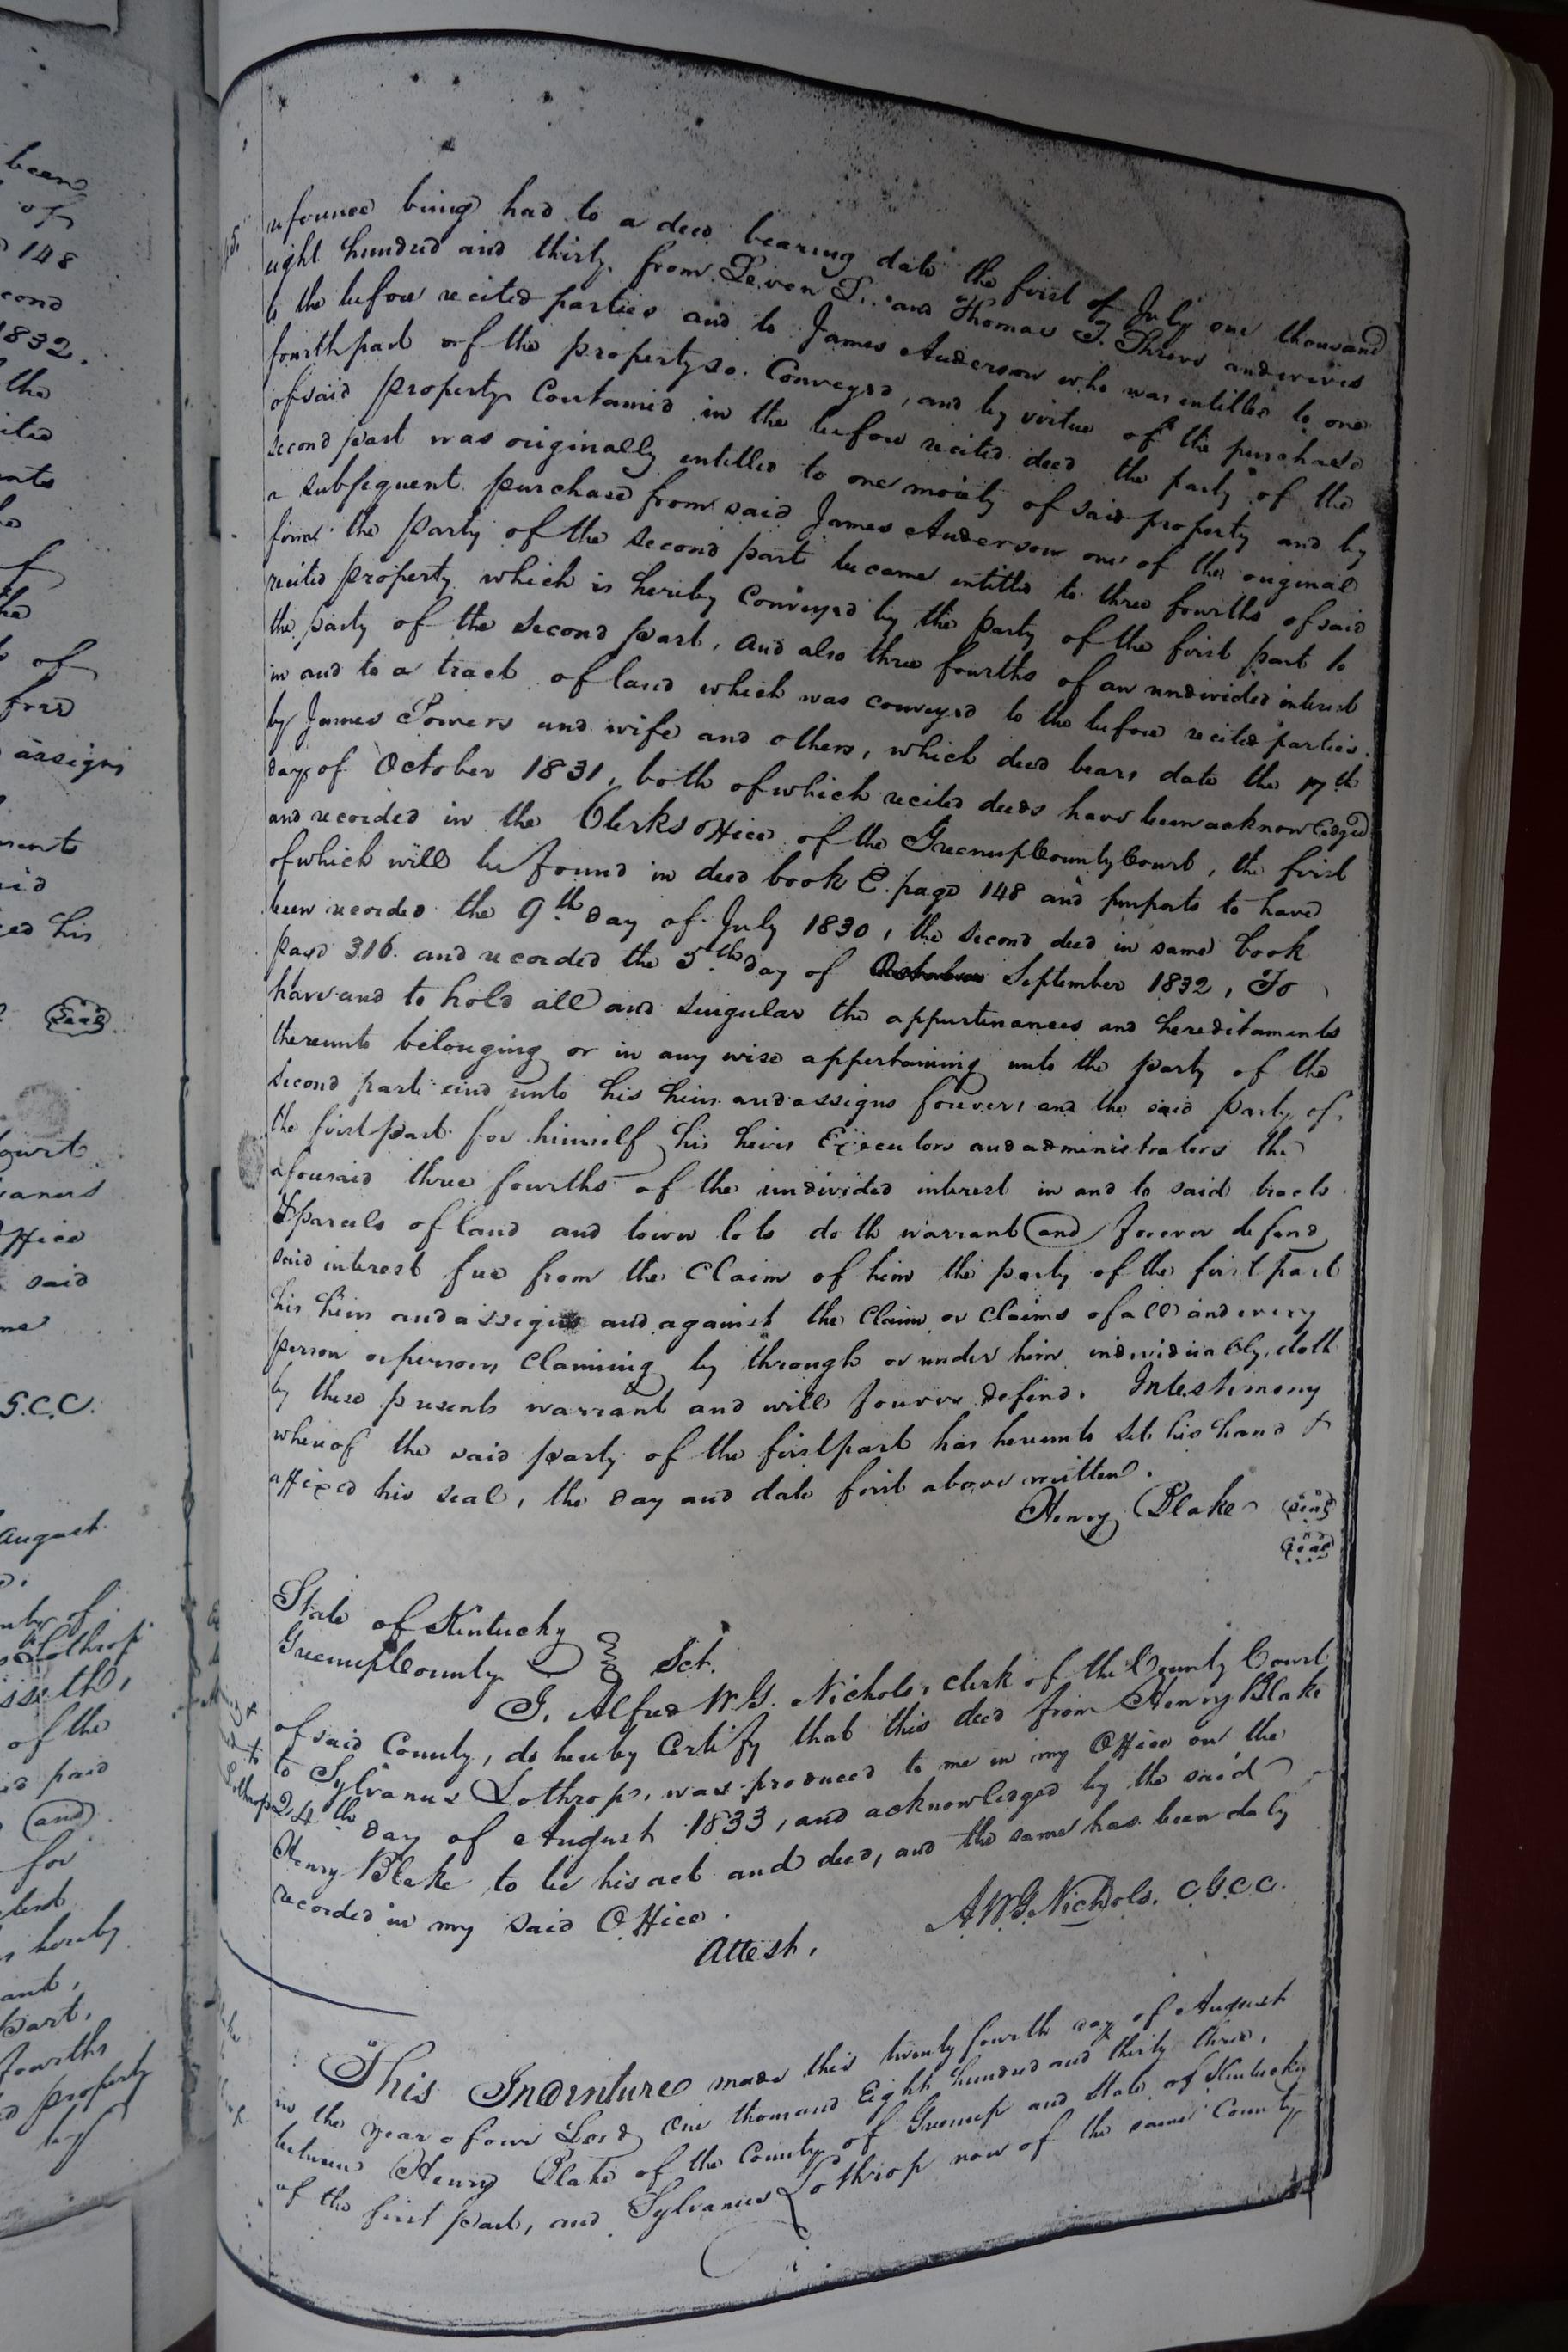 been
of
148
cond
1832.
the
of
assigns
his
Seal
Office
said
S.C.C.
August
Lothrop
of the
paid
(and)
for
hereby
part,
fourths
property
by
reference being had to a deed bearing date the first of July one thousand
eight hundred and thirty, from Leven L. and Thomas J. Shreve and wives
to the before recited parties and to James Anderson who was entitled to one
fourth part of the property so Conveyed, and by virtue of the purchase
of said property Contained in the before recited deed the party of the
second part was originally entitled to one moiety of said property and by
a subsequent purchase from said James Anderson one of the original
firm the party of the second part became entitled to three fourths of said
recited property which is hereby Conveyed by the party of the first part to
the party of the second part, and also three fourths of an undivided interest
in and to a tract of land which was conveyed to the before recited parties
by James Powers and wife and others, which deed bears date the 17th
day of October 1831, both of which recited deeds have been acknowledged
and recorded in the Clerks Office of the Greenup County Court, the first
of which will be found in deed book C. page 148 and purports to have
been recorded the 9th day of July 1830, the second deed in same book
page 316. and recorded the 5th day of October September 1832, To
have and to hold all and singular the appurtinances and hereditaments
thereunto belonging or in any wise appertaining unto the party of the
second part and unto his heirs and assigns forever, and the said party of
the first part for himself his heirs Executors and administrators the
aforesaid three fourths of the undivided interest in and to said tracts
& parcels of land and town lots doth warrant (and) forever defend
said interest free from the Claim of him the party of the first part
his heirs and assigns and against the Claim or Claims of all and every
person or persons Claiming by through or under him individually, doth
by these presents warrant and will forever defend. In testimony
whereof the said party of the first part has hereunto set his hand &
affixed his seal, the day and date first above written.
Henry Blake (Seal)
(Seal)
State of Kentucky
Greenup County } Sct.
I, Alfred W G. Nichols, clerk of the County Court
of said County, do hereby Certify that this deed from Henry Blake
to Sylvanus Lothrop, was produced to me in my Office on the
24th day of August 1833, and acknowledged by the said
Henry Blake to be his act and deed, and the same has been duly
recorded in my said Office.
Attest, A W G Nichols. C G C C.
to
Lothrop
This Indenture made this twenty fourth day of August
in the year of our Lord One thousand Eight hundred and thirty three,
between Henry Blake of the County of Greenup and State of Kentucky
of the first part, and Sylvanus Lothrop now of the same County